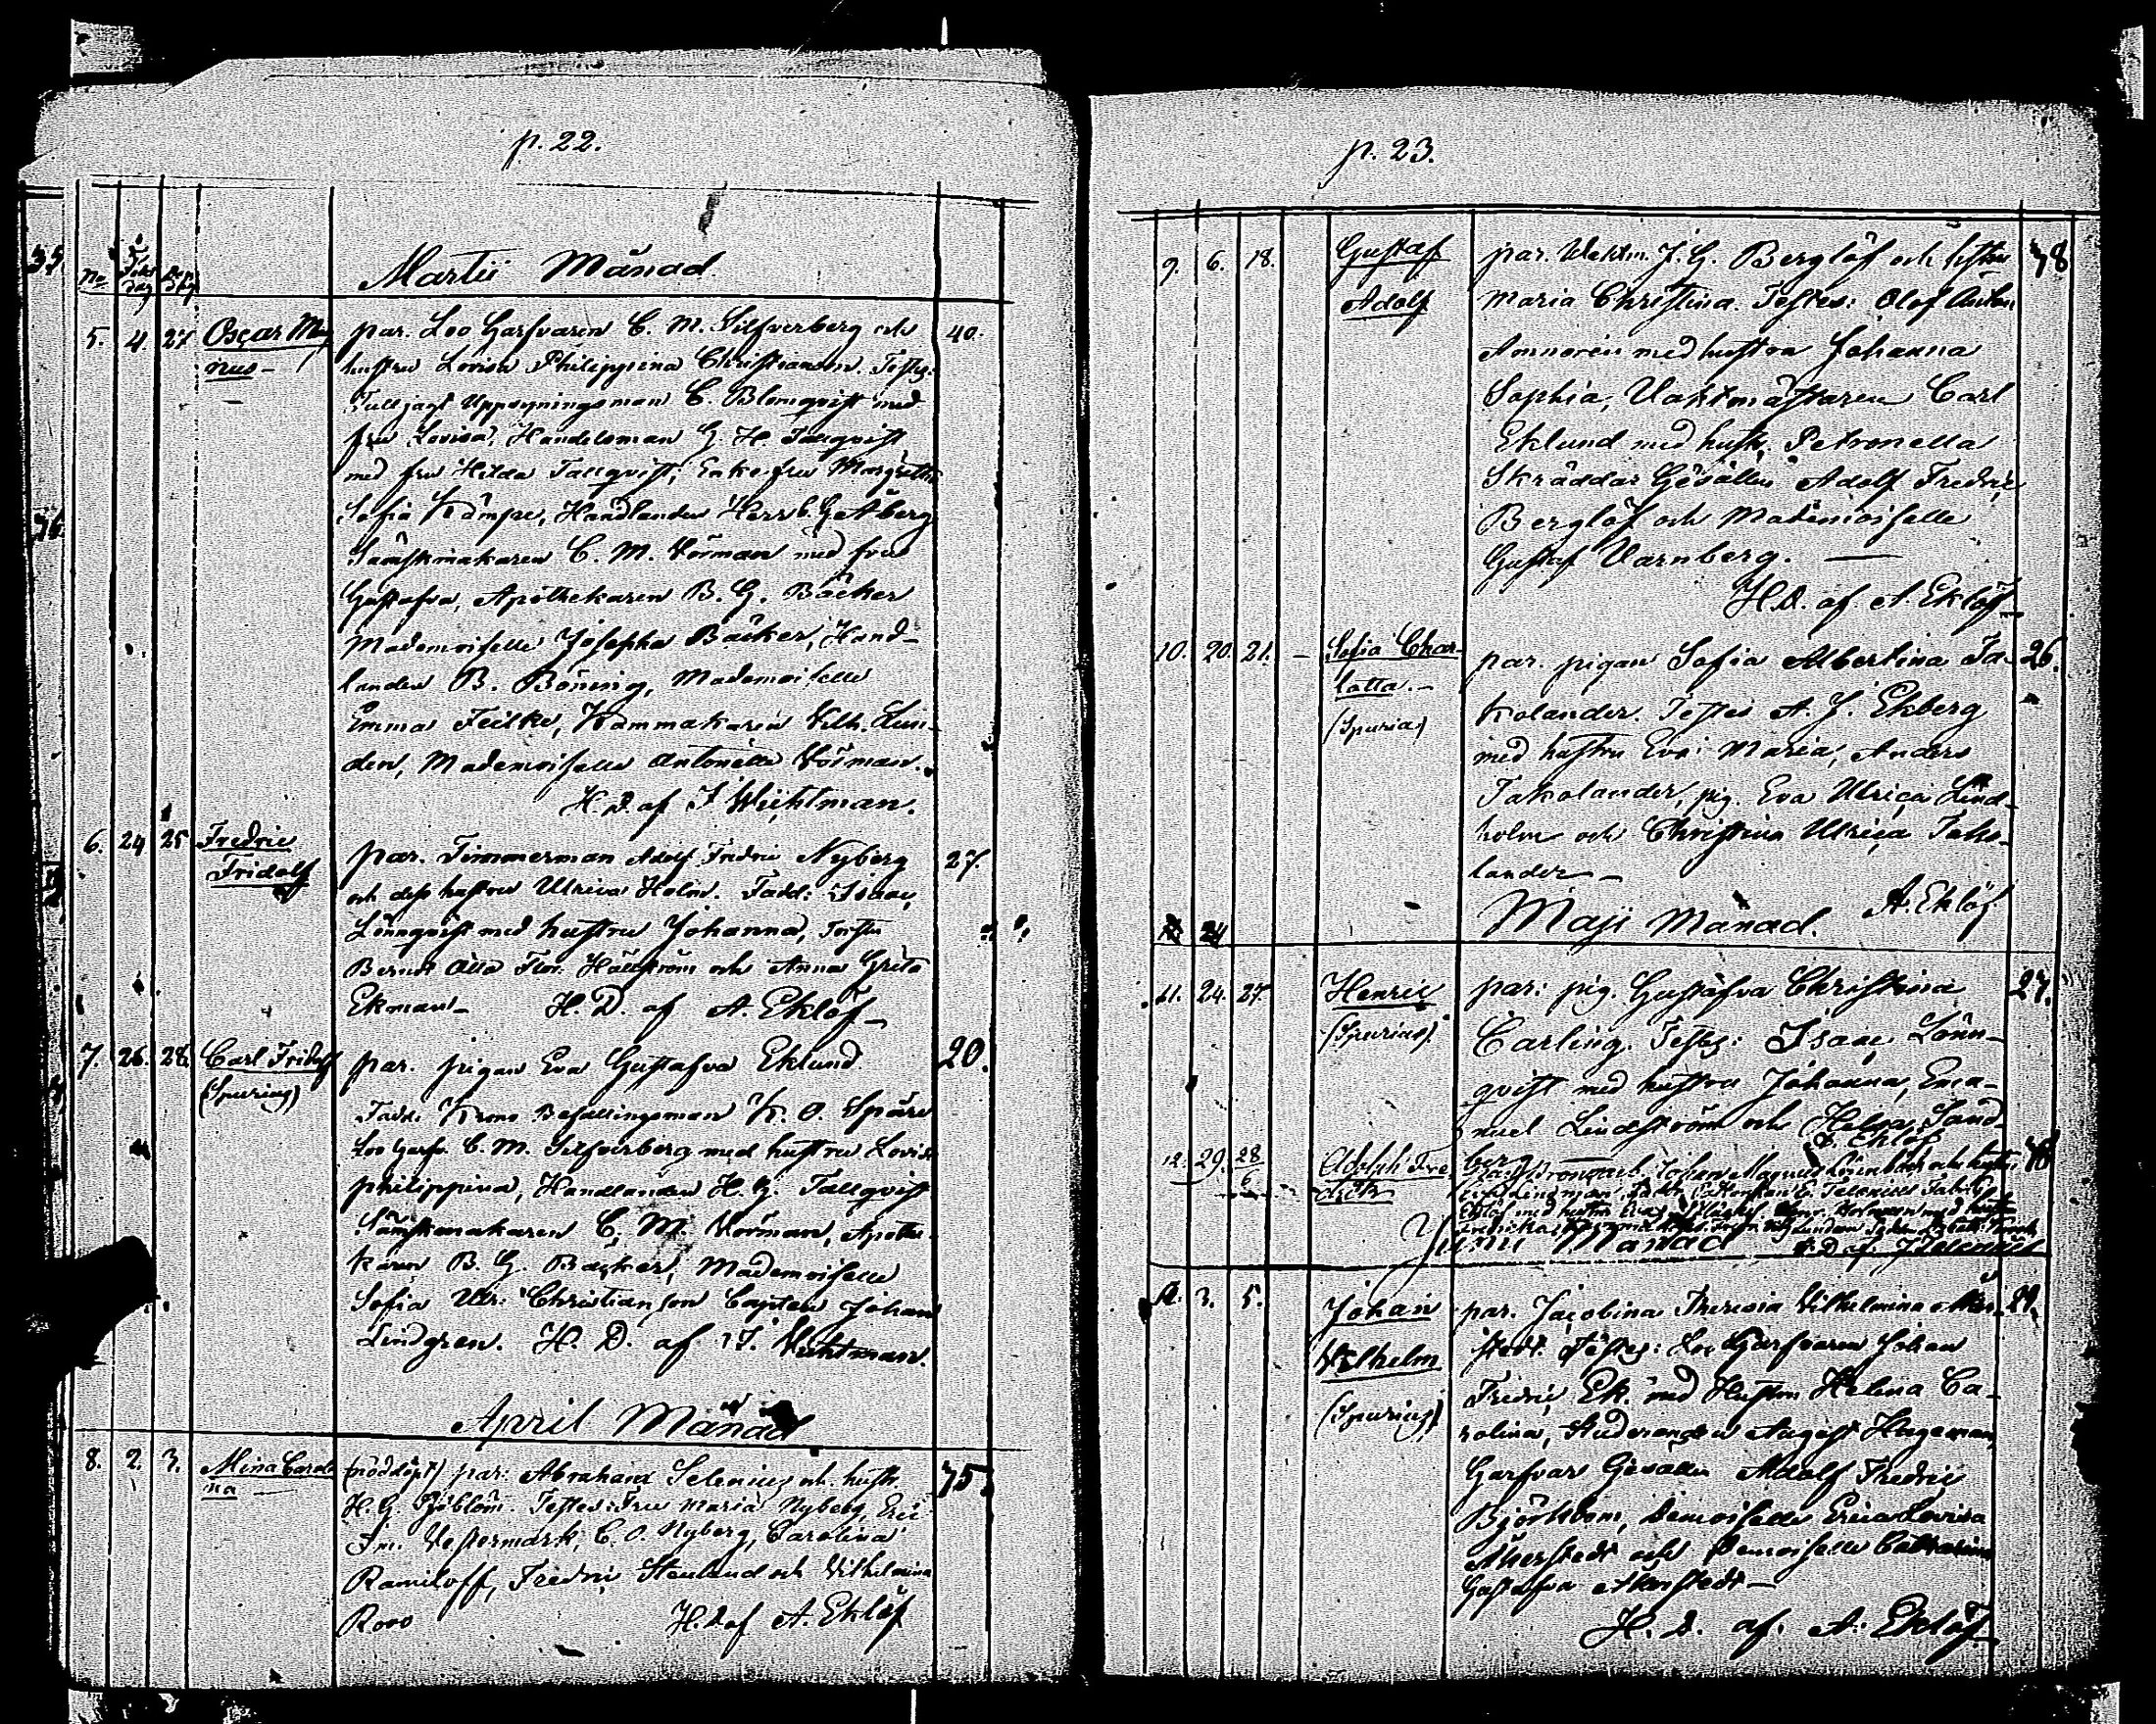 p. 22.
Martii Månad
No Föd. dag Döp. dag
5. 4. 27 Oscar Mag par. Loo Garfvaren C. M. Silfverberg och 40.
nus - hustru Lovisa Philippina Christianson. Testes:
Tulljagt Uppsyningsman C. Blomqvist med
fru Lovisa, Handelsman G. H. Tallqvist
med fru Hilda Tallqvist, Enkefru Margretha
Sofia Kämpe, Handlanden Herr C. G. Åberg
Sämskmakaren C. M. Vörman med fru
Gustafva, Apothekaren B. G. Bäcker
Mademoiselle Josepha Bäcker, Hand-
landen B. Böning, Mademoiselle
Emma Feilke, Kammakaren Vilh. Lun-
den, Mademoiselle Antonette Vörman.
H. D. af J. Wichtman.
6. 24 25 Fredric par. Timmerman Adolf Fredric Nyberg 27.
Fridolf och dess hustru Ulrica Holm. Fadd: Isaac
Lönnqvist med hustru Johanna,
Berndt Otto Hällström och Anna Greta
Ekman - H. D. af A. Eklöf -
7. 26. 28. Carl Fridolf par. pigan Eva Gustafva Eklund. 20.
(Spurius) Fadd: Krono Befallningsman K. O. Spåre
Loo Garfv. C. M. Silfverberg med hustru Lovisa
Philippina, Handlanden H. G. Tallqvist
Sämskmakaren C. M. Vörman, Apothe-
karen B. G. Backer, Mademoiselle
Sofia Ulr: Christianson Capten Johan
Lindgren. H. D. af J. Wichtman.
April Månad
8. 2. 3. Mina Caroli (nöddöpt) par: Abraham Selenius och hustr. 35.
na H. G. Sjöblom. Testes: Fru Maria Nyberg, Eric
Im. Vestermark, C. O. Nyberg, Carolina
Ramiloff, Fredric Stenlund och Vilhelmina
Roos H. D. af A. Eklöf
p. 23.
9. 6. 18. Gustaf par. Waktm. J. G. Berglöf och hustru 38
Adolf Maria Christina. Testes: Olof Anton
Amnorén med hustru Johanna
Sophia, Vaktmästaren Carl
Eklund med hustr. Petronella
Skräddar Gesällen Adolf Fredric
Berglöf och Mademoiselle
Gustaf Varnberg. -
H. D. af. A. Eklöf
10. 20. 21. - Sofia Char- par. pigan Sofia Albertina Ta- 26.
lotta. - kolander. Testes A. J. Ekberg
(Spuria) med hustru Eva Maria, Anders
Takolander, pig. Eva Ulrica Lind-
holm och Christina Ulrica Tako-
lander - A. Eklöf
Maji Månad.
24
11. 24. 27. Henric par: pig. Gustafva Christina 27.
(Spurius) Carling. Testes: Isaac Lönn-
qvist med hustru Johanna, Ema-
nuel Lindström och Helena Sand-
berg - A. Eklöf
12. 29. 28/6 Adolph Fre Johan Magnus och hustru
drik
Eklöf med hustru Eva
Junii Månad H. D. af.
3. 5. Johan par. Jacobina Theresia Vilhelmina Åker- 21.
Wilhelm stedt. Testes: Loo Garfvaren Johan
(Spurius) Fredric Ek. med Hustru Helena Ca-
rolina, Studeranden August Hageman,
Garfvar Gesällen Adolf Fredric
Björkbom, Demoiselle Erica Lovisa
Åkerstedt och Demoiselle Catharina
Gustafva Åkerstedt -
H. D. af. A. Eklöf